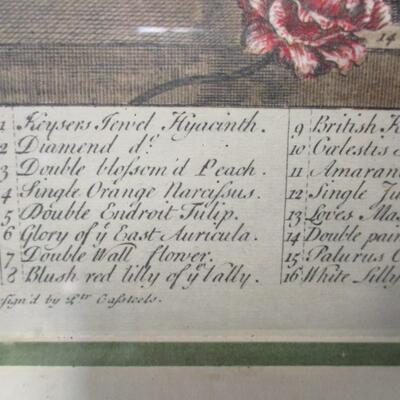 14
1 Keysers Jewel Hyacinth.
2 Diamond dº.
3 Double blossom'd Peach.
4 Single Orange Narcissus.
5 Double Endroit Tulip.
6 Glory of yͤ East Auricula.
7 Double Wall flower.
8 Blush red lilly of yͤ Vally.
9 British
10 Cœlestis
11
12 Single
13 Loves
14 Double
15 Palurus
16 White Lilly
sign'd by Pᵗʳ Casteels.